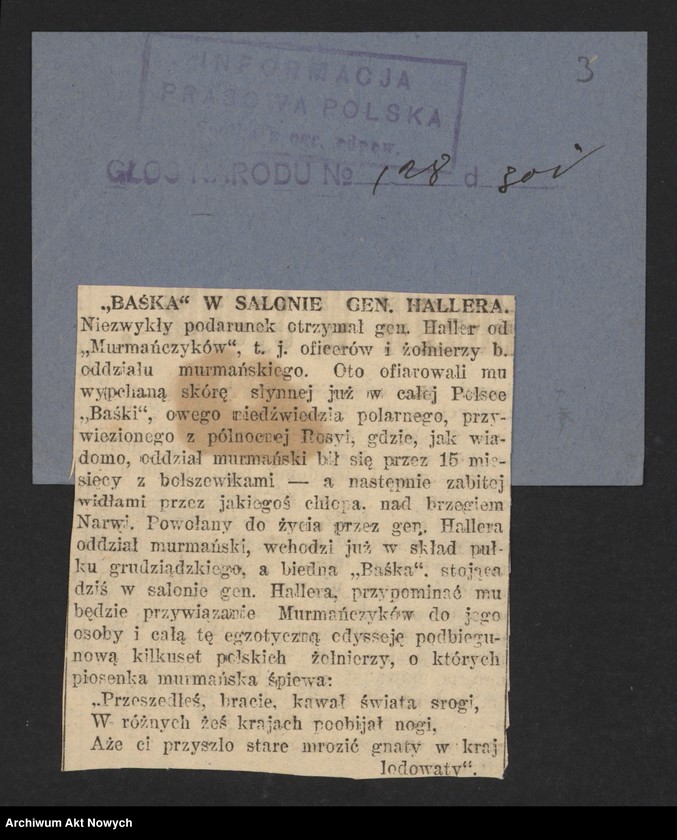 3
INFORMACJA
PRASOWA POLSKA
GŁOS NARODU № 128 d
„BAŚKA“ W SALONIE GEN. HALLERA.
Niezwykły podarunek otrzymał gen. Haller od
„Murmańczyków“, t. j. oficerów i żołnierzy b.
oddziału murmańskiego. Oto ofiarowali mu
wypchaną skórę słynnej już w całej Polsce
„Baśki“, owego niedźwiedzia polarnego, przy-
wiezionego z północnej Rosyi, gdzie, jak wia-
domo, oddział murmański bił się przez 15 mie-
sięcy z bolszewikami — a następnie zabitej
widłami przez jakiegoś chłopa. nad brzegiem
Narwi. Powołany do życia przez gen. Hallera
oddział murmański, wchodzi już w skład puł-
ku grudziądzkiego, a biedna „Baśka“. stojąca
dziś w salonie gen. Hallera, przypominać mu
będzie przywiązanie Murmańczyków do jego
osoby i całą tę egzotyczną odysseję podbiegu-
nową kilkuset polskich żołnierzy, o których
piosenka murmańska śpiewa:
„Przeszedłeś, bracie, kawał świata srogi,
W różnych żeś krajach poobijał nogi,
Aże ci przyszło stare mrozić gnaty w kraj
lodowaty“.
Archiwum Akt Nowych